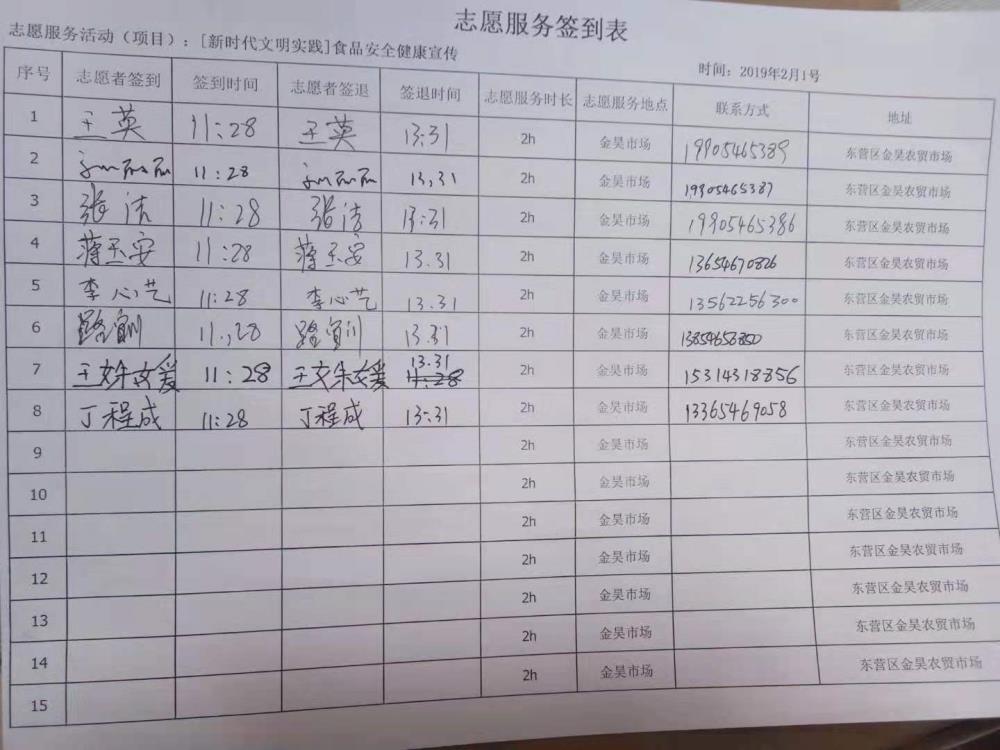 志愿服务签到表
志愿服务活动（项目）：[新时代文明实践]食品安全健康宣传
时间：2019年2月1号
序号 志愿者签到 签到时间 志愿者签退 签退时间 志愿服务时长 志愿服务地点 联系方式 地址
1 王英 11:28 王英 13:31 2h 金昊市场 19905465389 东营区金昊农贸市场
2 11:28 13,31 2h 金昊市场 19905465387 东营区金昊农贸市场
3 张洁 11:28 张洁 13:31 2h 金昊市场 19905465386 东营区金昊农贸市场
4 蒋玉安 11:28 蒋玉安 13.31 2h 金昊市场 13654670826 东营区金昊农贸市场
5 李心艺 11:28 李心艺 13.31 2h 金昊市场 13562256300 东营区金昊农贸市场
6 11:28 13:31 2h 金昊市场 13854658850 东营区金昊农贸市场
7 11:28 13.31 2h 金昊市场 15314318856 东营区金昊农贸市场
8 丁程成 11:28 丁程成 13:31 2h 金昊市场 13365469058 东营区金昊农贸市场
9 2h 金昊市场 东营区金昊农贸市场
10 2h 金昊市场 东营区金昊农贸市场
11 2h 金昊市场 东营区金昊农贸市场
12 2h 金昊市场 东营区金昊农贸市场
13 2h 金昊市场 东营区金昊农贸市场
14 2h 金昊市场 东营区金昊农贸市场
15 2h 金昊市场 东营区金昊农贸市场